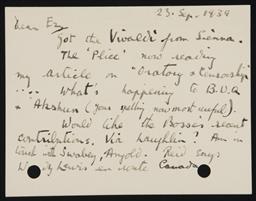 23. Sep. 1939
Dear Ez,
Got the Vivaldi from Sienna.
The 'Plice' now reading
my article on "Oratory & censorship
.... What's happening to B.U.Q
& 'Akshun (your spelling now most useful).
Would like the Bosse's recent
contributions. Via Laughlin? Am in
touch with Swabey, Angold. Reid says
Wyndy Lewis en route Canada